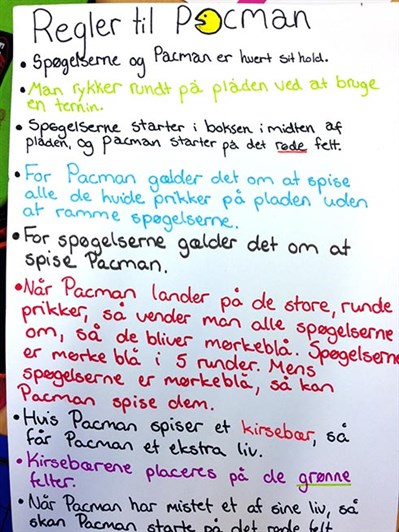 Regler til Pacman
• Spøgelserne og Pacman er hvert sit hold.
• Man rykker rundt på pladen ved at bruge
en ternin.
• Spøgelserne starter i boksen i midten af
pladen, og Pacman starter på det røde felt.
• For Pacman gælder det om at spise
alle de hvide prikker på pladen uden
at ramme spøgelserne.
• For spøgelserne gælder det om at
spise Pacman.
• Når Pacman lander på de store, runde
prikker, så vender man alle spøgelserne
om, så de bliver mørkeblå. Spøgelserne
er mørke blå i 5 runder. Mens
spøgelserne er mørkeblå, så kan
Pacman spise dem.
• Hvis Pacman spiser et kirsebær, så
får Pacman et ekstra liv.
• Kirsebærene placeres på de grønne
felter.
• Når Pacman har mistet et af sine liv, så
skal Pacman starte på det røde felt